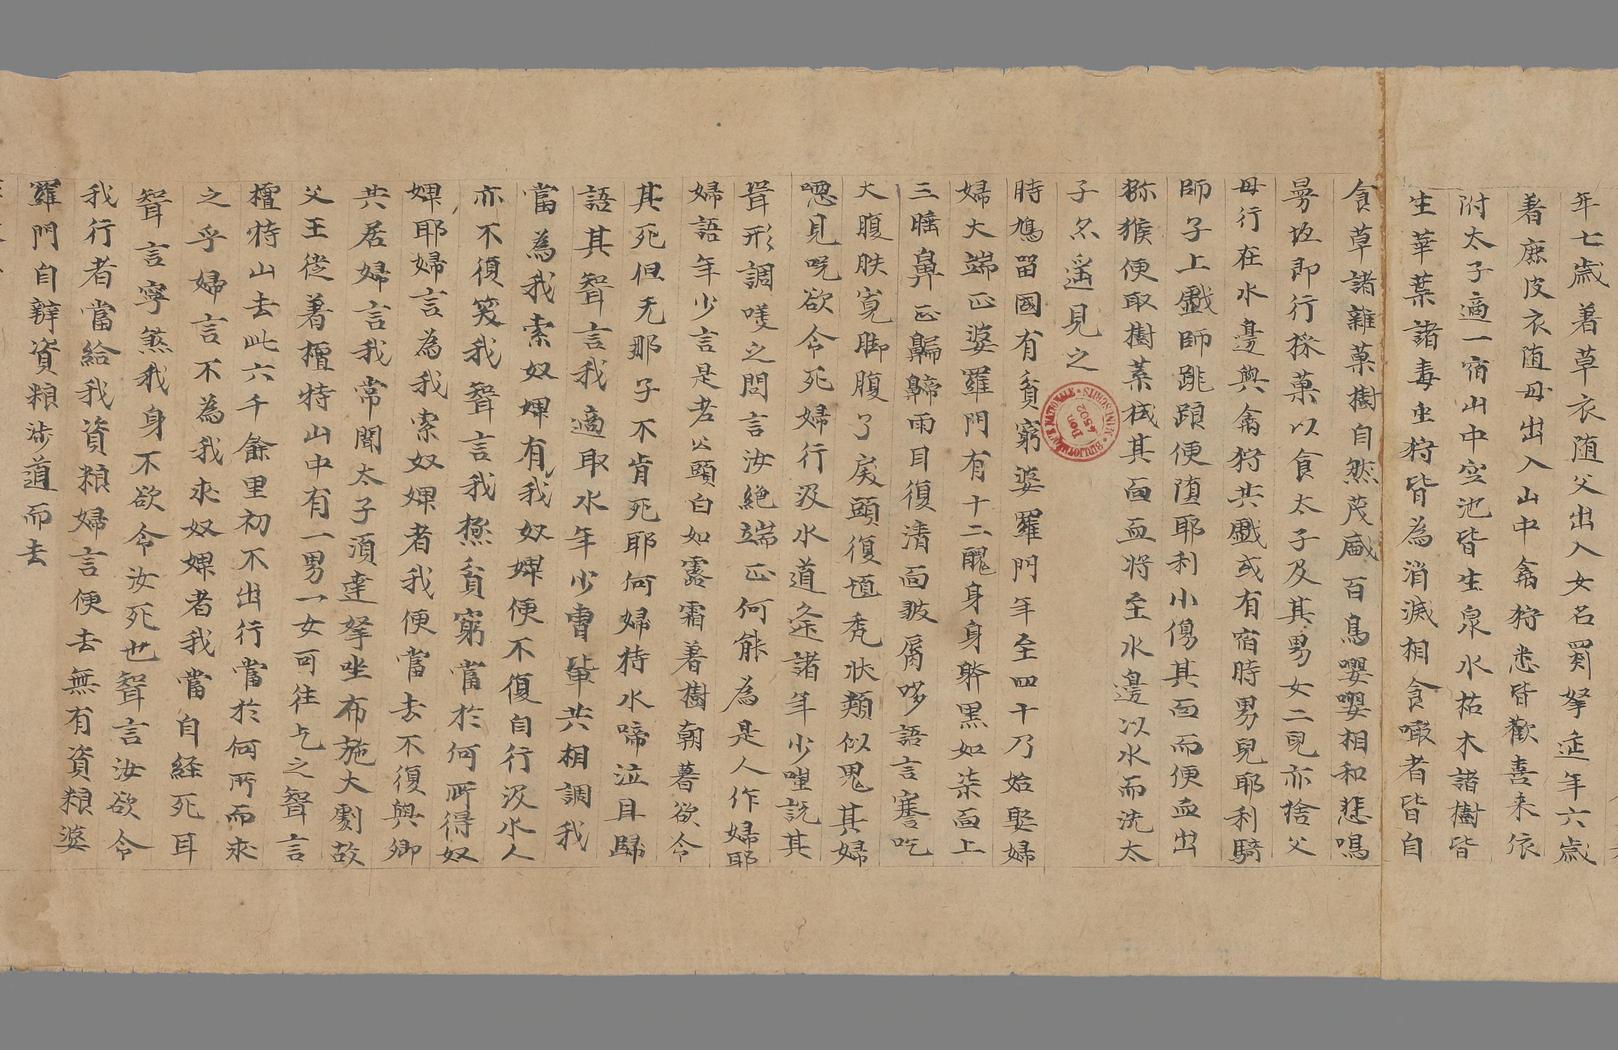 年七歲著草衣随父出入女名罽拏延年六歳
著鹿皮衣随母出入山中禽狩悉皆歡喜来依
附太子適一宿山中空池皆生泉水枯木諸樹皆
生華葉諸毒虫狩皆為消滅相食噉者皆自
食草諸雜菓樹自然茂盛百鳥嚶嚶相和悲鳴
曼坻即行採菓以食太子及其男女二兒亦捨父
母行在水邊與禽狩共戲或有宿時男兒耶利騎
師子上戲師跳踉便堕耶利小傷其面而便血出
猕猴便取樹葉拭其面血将至水邊以水而洗太
子亦遥見之
時鳩留國有貧窮婆羅門年至四十乃始娶婦
婦大端正婆羅門有十二醜身躰黑如柒面上
三㿺鼻正匾㔸兩目復清面皺脣哆語言謇吃
大腹䏶寬脚復了戾頭復禿狀類似鬼其婦
惡見呪欲令死婦行汲水道逢諸年少嗤説其
聟形調咲之問言汝絶端正何能為是人作婦耶
婦語年少言是老公頭白如露霜著樹朝暮欲令
其死但无那子不肯死耶何婦持水啼泣且歸
語其聟言我適取水年少曹輩共相調我
當為我索奴婢有我奴婢便不復自行汲水人
亦不復笑我聟言我極貧窮當於何所得奴
婢耶婦言為我索奴婢者我便當去不復與卿
共居婦言我常聞太子湏達拏坐布施太劇故
父王徙著檀特山中有一男一女可往乞之聟言
檀特山去此六千餘里初不出行當於何所而求
之乎婦言不為我求奴婢者我當自経死耳
聟言寧煞我身不欲令汝死也聟言汝欲令
我行者當給我資粮婦言便去無有資粮婆
羅門自辦資粮涉道而去
BIBLIOTHÈQUE NATIONALE MANUSCRITS Don 4502